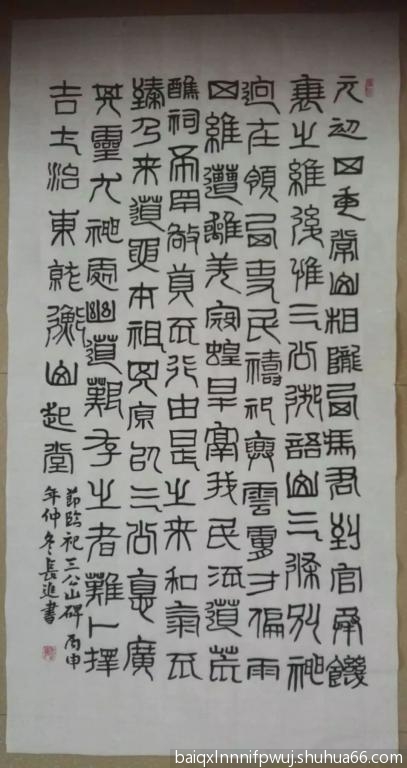 元初四年常山相隴西馮君到官承饑
衰之維後惟三公御語山三條別神
迥在領西吏民禱祀興雲膚寸偏雨
四維遭離羌寇蝗旱鬲我民流道荒
醮祠希罕敬奠不行由是之來和氣不
臻乃來道要本祖其原以三公惪廣
其靈尤神處幽道艱存之者難卜擇
吉土治東就衡山起堂
節臨祀三公山碑 丙申
年仲冬長進書
baiqxlnnnifpwuj.shuhua66.com